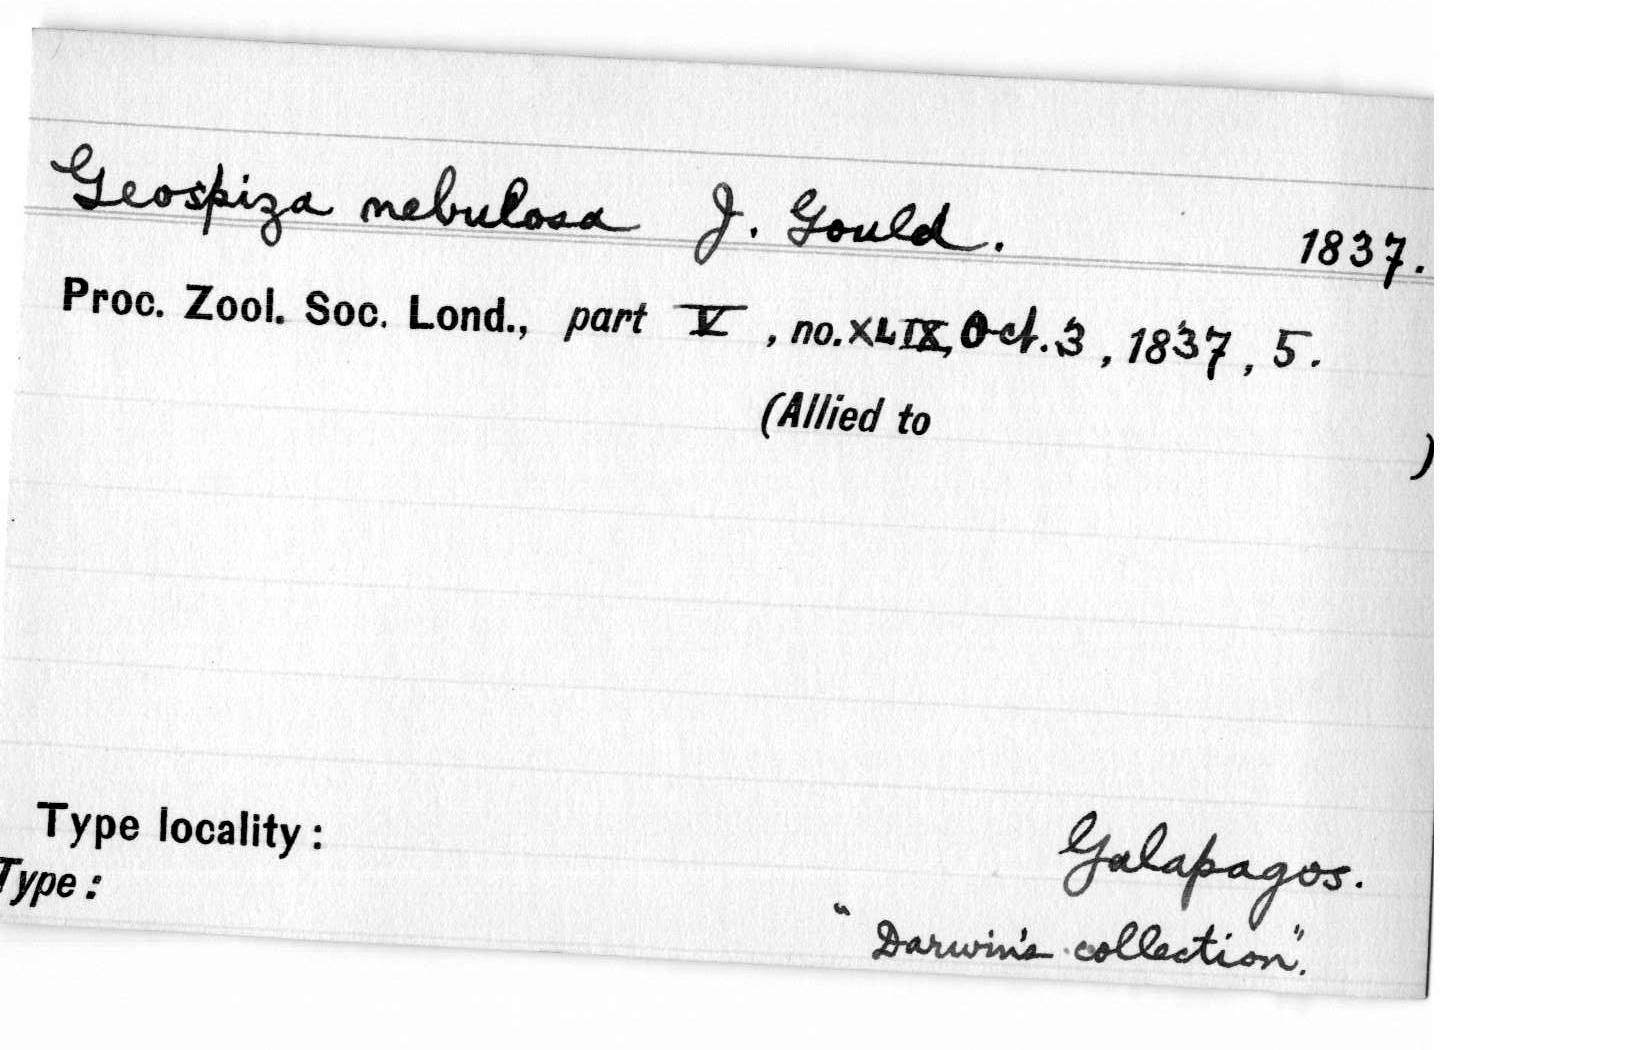 Geospiza nebulosa J. Gould. 1837.
Proc. Zool. Soc. Lond., part V, no. XLIX, Oct. 3, 1837, 5.
(Allied to )
Type locality: Galapagos.
Type: "Darwin's collection".